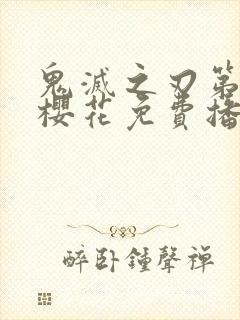 鬼滅之刃第
櫻花免費播
醉卧鐘聲禪